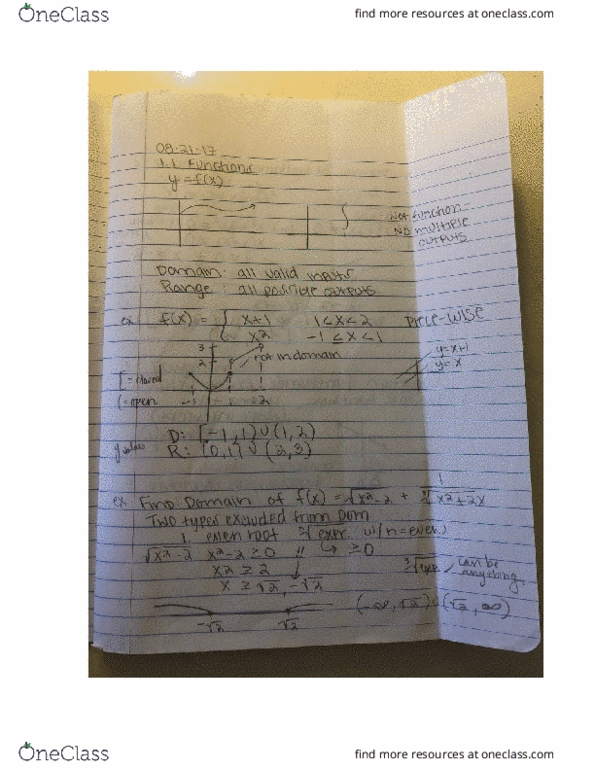 OneClass
find more resources at oneclass.com
08-21-17
1.1 Functions
y = f(x)
Not function -
NO multiple
outputs
Domain: all valid inputs
Range: all possible outputs
ex f(x) = { x+1 1<x<2 Piece-wise
x2 -1 ≤ x < 1
3
2
not in domain
y=x+1
y=x
[ = closed
( = open
-1 1 2
D: [-1,1) ∪ (1,2)
y values R: [0,1] ∪ (2,3)
ex Find Domain of f(x) = √x²-2 + 1
x²+2x
Two types excluded from Dom
1. even root ⁿ√expr. w/(n=even)
√x²-2 x²-2 ≥ 0 ↳ ≥0
x2 ≥ 2
x ≥ √2, -√2
can be
anything
-√2 √2
(-∞, √2) (√2, ∞)
OneClass
find more resources at oneclass.com